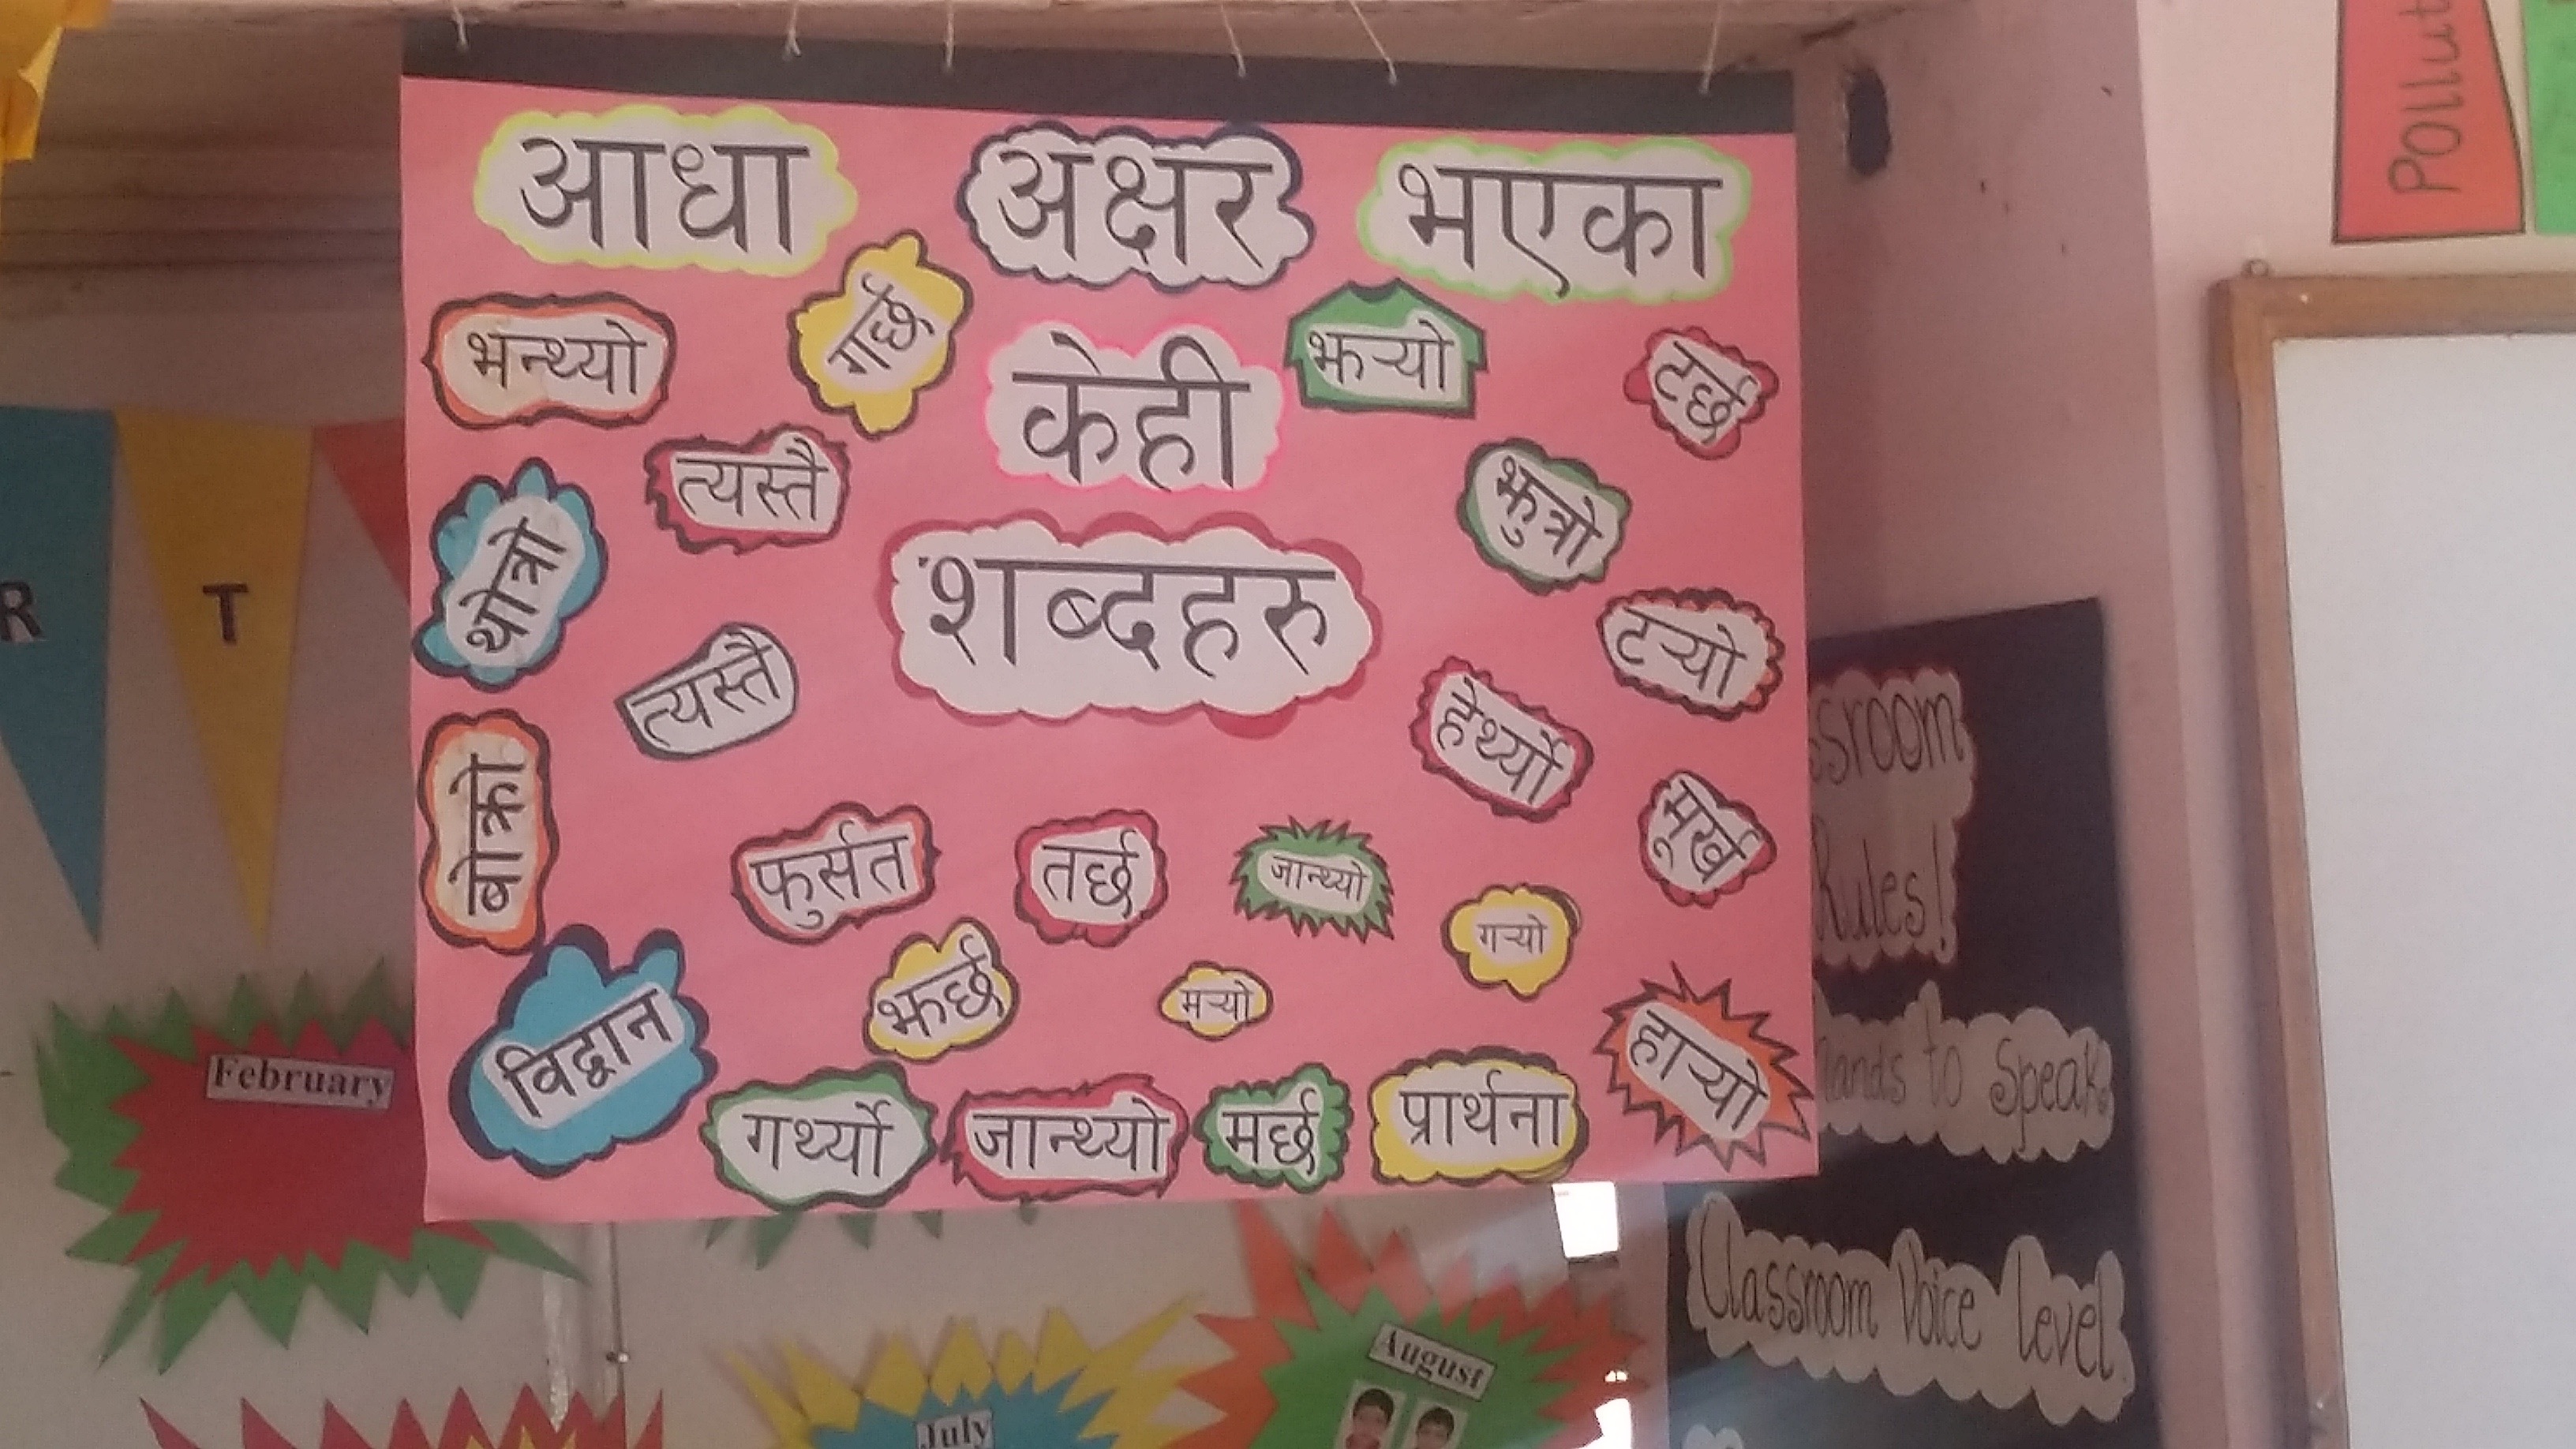 आधा अक्षर भएका
केही
शब्दहरु
भन्थ्यो
गर्छ
झर्‍यो
टर्छ
त्यस्तै
झुत्रो
थोत्रो
टर्‍यो
त्यस्तै
हेर्थ्यो
बोक्रो
मूर्ख
फुर्सत
तर्छ
जान्थ्यो
गर्‍यो
झर्छ
मर्‍यो
विद्वान
हार्‍यो
गर्थ्यो
जान्थ्यो
मर्छ
प्रार्थना
Pollut
R T
ssroom
Rules!
ands to Speak
Classroom Voice level
February
July
August